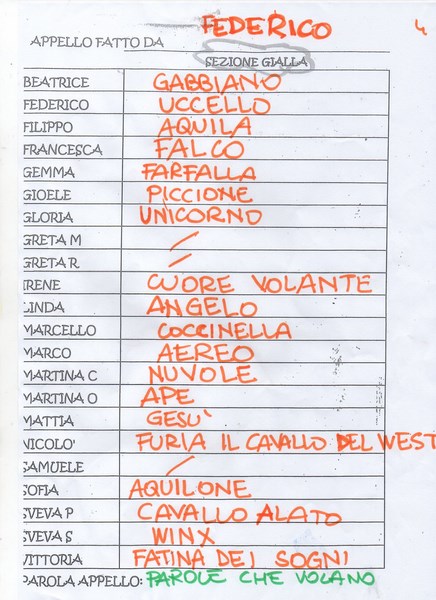 4
APPELLO FATTO DA FEDERICO
SEZIONE GIALLA
BEATRICE GABBIANO
FEDERICO UCCELLO
FILIPPO AQUILA
FRANCESCA FALCO
GEMMA FARFALLA
GIOELE PICCIONE
GLORIA UNICORNO
GRETA M /
GRETA R /
IRENE CUORE VOLANTE
LINDA ANGELO
MARCELLO COCCINELLA
MARCO AEREO
MARTINA C NUVOLE
MARTINA O APE
MATTIA GESU'
NICOLO' FURIA IL CAVALLO DEL WEST
SAMUELE /
SOFIA AQUILONE
SVEVA P CAVALLO ALATO
SVEVA S WINX
VITTORIA FATINA DEI SOGNI
PAROLA APPELLO: PAROLE CHE VOLANO